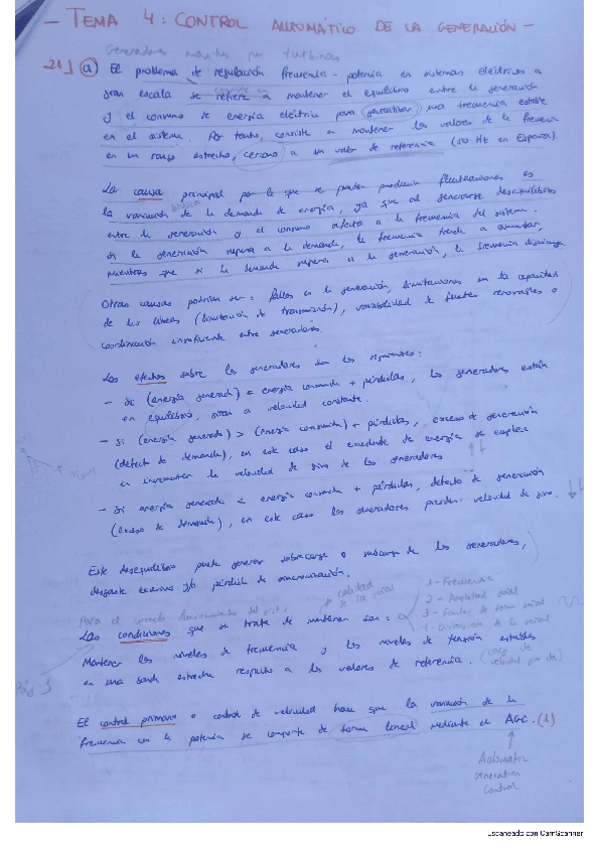 - TEMA 4: CONTROL AUTOMÁTICO DE LA GENERACIÓN -
Generadores movidos por turbinas
21) a) El problema de regulación frecuencia-potencia en sistemas eléctricos a
gran escala se refiere a mantener el equilibrio entre la generación
y el consumo de energía eléctrica para garantizar una frecuencia estable
en el sistema. Por tanto, consiste en mantener los valores de la frecuencia
en un rango estrecho, cercano a un valor de referencia (50 Hz en España).
La causa principal por la que se pueden producir fluctuaciones es
la variación de la demanda de energía, ya que al generarse desequilibrios
entre la generación y el consumo afecta a la frecuencia del sistema.
Si la generación supera a la demanda, la frecuencia tiende a aumentar,
mientras que si la demanda supera a la generación, la frecuencia disminuye
Otras causas podrían ser: fallos en la generación, limitaciones en la capacidad
de las líneas (limitación de transmisión), variabilidad de fuentes renovables o
coordinación insuficiente entre generadores.
Los efectos sobre los generadores son los siguientes:
- Si (energía generada) = energía consumida + pérdidas, los generadores están
en equilibrio, giran a velocidad constante.
- Si (energía generada) > (energía consumida) + pérdidas, exceso de generación
(defecto de demanda), en este caso el excedente de energía se emplea
en incrementar la velocidad de giro de los generadores
- Si energía generada < energía consumida + pérdidas, defecto de generación
(exceso de demanda), en este caso los generadores pierden velocidad de giro.
Este desequilibrio puede generar sobrecarga o subcarga de los generadores,
desgaste excesivo y/o pérdida de sincronización.
calidad
de la señal
1 - Frecuencia
2 - Amplitud señal
3 - Factor de forma señal
4 - Distorsión de la señal
Para el correcto funcionamiento del sist.
Las condiciones que se trata de mantener son:
Mantener los niveles de frecuencia y los niveles de tensión estables
en una banda estrecha respecto a los valores de referencia.
Pág 3
El control primario o control de velocidad hace que la variación de la
frecuencia con la potencia se comporte de forma lineal mediante el AGC. (1)
Automatic
Generation
Control
Escaneado con CamScanner